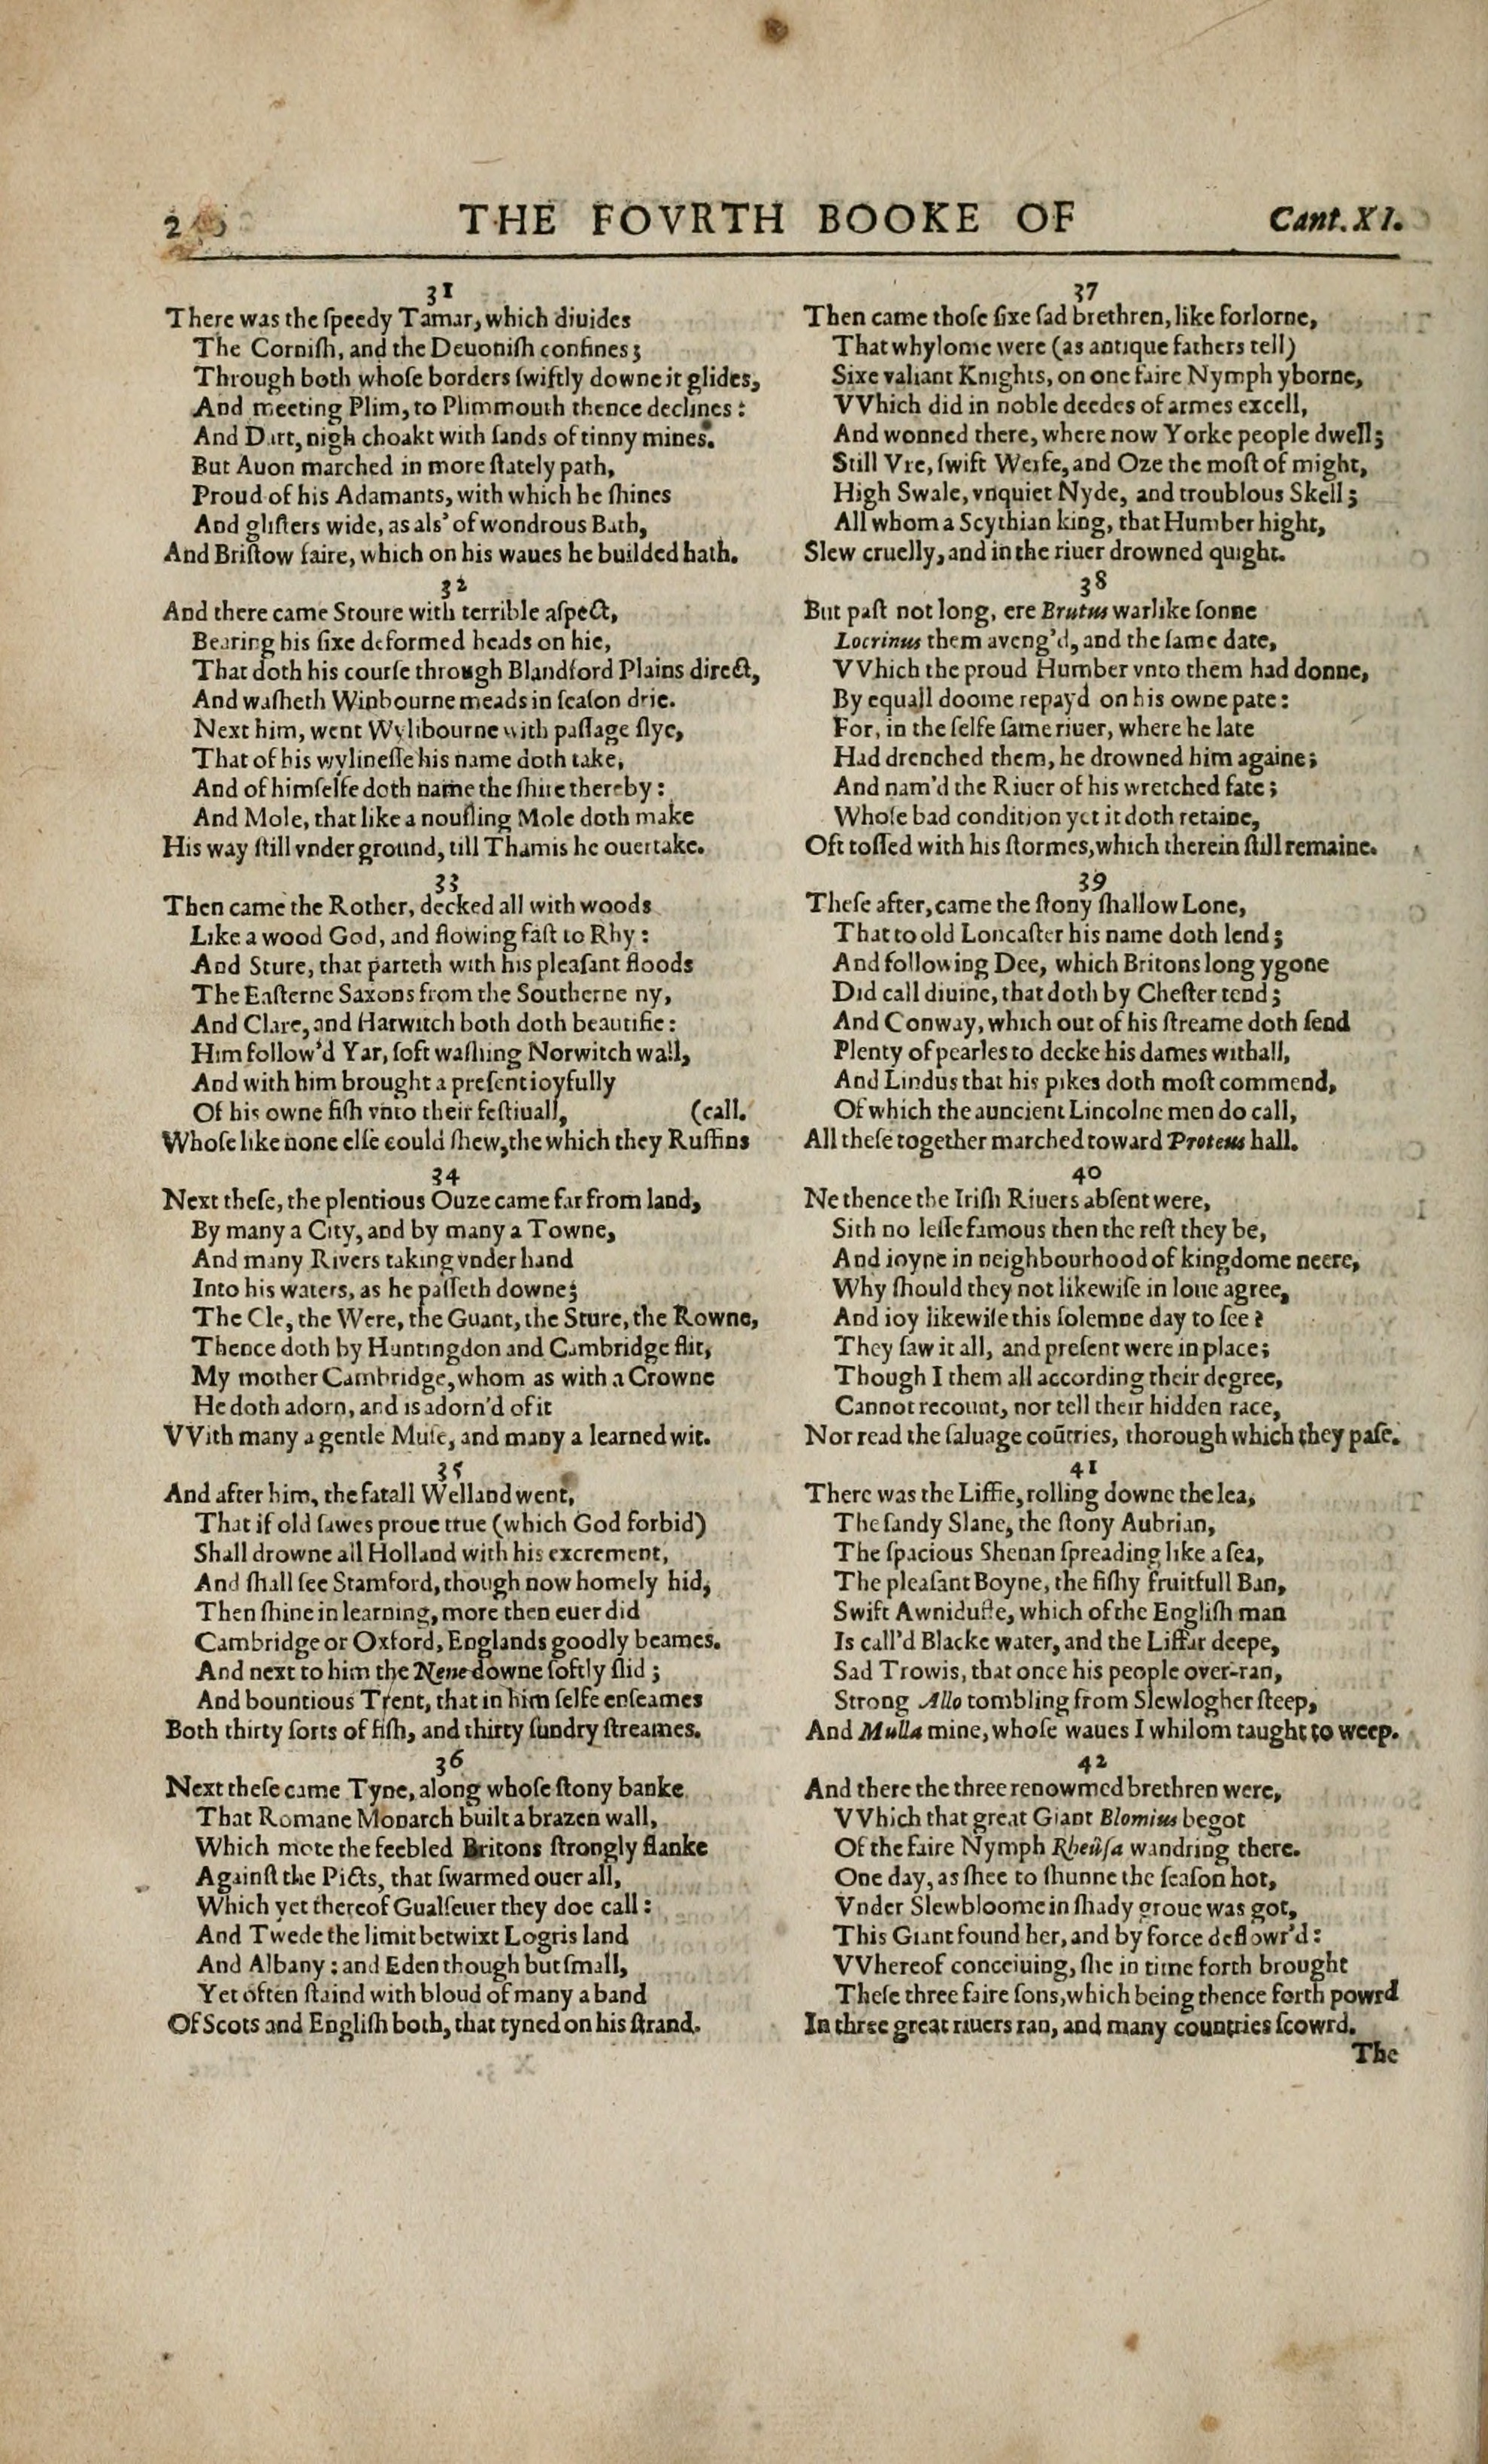 THE FOVRTH BOOKE OF Cant. XI.
31
There was the ſpeedy Tamar, which diuides
The Corniſh, and the Deuoniſh confines;
Through both whoſe borders ſwiftly downe it glides,
And meeting Plim, to Plimmouth thence declines:
And Dart, nigh choakt with ſands of tinny mines.
But Auon marched in more ſtately path,
Proud of his Adamants, with which he ſhines
And gliſters wide, as als' of wondrous Bath,
And Briſtow faire, which on his waues he builded hath.
32
And there came Stoure with terrible aſpect,
Bearing his ſixe deformed heads on hie,
That doth his courſe through Blandford Plains direct,
And waſheth Winbourne meads in ſeaſon drie.
Next him, went Wylibourne with paſſage ſlye,
That of his wylineſſe his name doth take,
And of himſelfe doth name the ſhire thereby:
And Mole, that like a nouſling Mole doth make
His way ſtill vnder ground, till Thamis he ouertake.
33
Then came the Rother, decked all with woods
Like a wood God, and flowing faſt to Rhy:
And Sture, that parteth with his pleaſant floods
The Eaſterne Saxons from the Southerne ny,
And Clare, and Harwitch both doth beautifie:
Him follow'd Yar, ſoft waſhing Norwitch wall,
And with him brought a preſent ioyfully
Of his owne fiſh vnto their feſtiuall, (call.
Whoſe like none elſe could ſhew, the which they Ruffins
34
Next theſe, the plentious Ouze came far from land,
By many a City, and by many a Towne,
And many Rivers taking vnder hand
Into his waters, as he paſſeth downe;
The Cle, the Were, the Guant, the Sture, the Rowne,
Thence doth by Huntingdon and Cambridge flit,
My mother Cambridge, whom as with a Crowne
He doth adorn, and is adorn'd of it
VVith many a gentle Muſe, and many a learned wit.
35
And after him, the fatall Welland went,
That if old ſawes proue true (which God forbid)
Shall drowne all Holland with his excrement,
And ſhall ſee Stamford, though now homely hid,
Then ſhine in learning, more then euer did
Cambridge or Oxford, Englands goodly beames.
And next to him the Nene downe ſoftly ſlid;
And bountious Trent, that in him ſelfe enſeames
Both thirty ſorts of fiſh, and thirty ſundry ſtreames.
36
Next theſe came Tyne, along whoſe ſtony banke
That Romane Monarch built a brazen wall,
Which mote the feebled Britons ſtrongly flanke
Againſt the Picts, that ſwarmed ouer all,
Which yet thereof Gualſeuer they doe call:
And Twede the limit betwixt Logris land
And Albany: and Eden though but ſmall,
Yet often ſtaind with bloud of many a band
Of Scots and Engliſh both, that tyned on his ſtrand.
37
Then came thoſe ſixe ſad brethren, like forlorne,
That whylome were (as antique fathers tell)
Sixe valiant Knights, on one faire Nymph yborne,
VVhich did in noble deedes of armes excell,
And wonned there, where now Yorke people dwell;
Still Vre, ſwift Werfe, and Oze the moſt of might,
High Swale, vnquiet Nyde, and troublous Skell;
All whom a Scythian king, that Humber hight,
Slew cruelly, and in the riuer drowned quight.
38
But paſt not long, ere Brutus warlike ſonne
Locrinus them aveng'd, and the ſame date,
VVhich the proud Humber vnto them had donne,
By equall doome repayd on his owne pate:
For, in the ſelfe ſame riuer, where he late
Had drenched them, he drowned him againe;
And nam'd the Riuer of his wretched fate;
Whoſe bad condition yet it doth retaine,
Oft toſſed with his ſtormes, which therein ſtill remaine.
39
Theſe after, came the ſtony ſhallow Lone,
That to old Loncaſter his name doth lend;
And following Dee, which Britons long ygone
Did call diuine, that doth by Cheſter tend;
And Conway, which out of his ſtreame doth ſend
Plenty of pearles to decke his dames withall,
And Lindus that his pikes doth moſt commend,
Of which the auncient Lincolne men do call,
All theſe together marched toward Proteus hall.
40
Ne thence the Iriſh Riuers abſent were,
Sith no leſſe famous then the reſt they be,
And ioyne in neighbourhood of kingdome neere,
Why ſhould they not likewiſe in loue agree,
And ioy likewiſe this ſolemne day to ſee?
They ſaw it all, and preſent were in place;
Though I them all according their degree,
Cannot recount, nor tell their hidden race,
Nor read the ſaluage coūtries, thorough which they paſe.
41
There was the Liffie, rolling downe the lea,
The ſandy Slane, the ſtony Aubrian,
The ſpacious Shenan ſpreading like a ſea,
The pleaſant Boyne, the fiſhy fruitfull Ban,
Swift Awniduffe, which of the Engliſh man
Is call'd Blacke water, and the Liffar deepe,
Sad Trowis, that once his people over-ran,
Strong Allo tombling from Slewlogher ſteep,
And Mulla mine, whoſe waues I whilom taught to weep.
42
And there the three renowmed brethren were,
VVhich that great Giant Blomius begot
Of the faire Nymph Rheûſa wandring there.
One day, as ſhee to ſhunne the ſeaſon hot,
Vnder Slewbloome in ſhady groue was got,
This Giant found her, and by force deflowr'd:
VVhereof conceiuing, ſhe in time forth brought
Theſe three faire ſons, which being thence forth powrd
In three great riuers ran, and many countries ſcowrd.
The